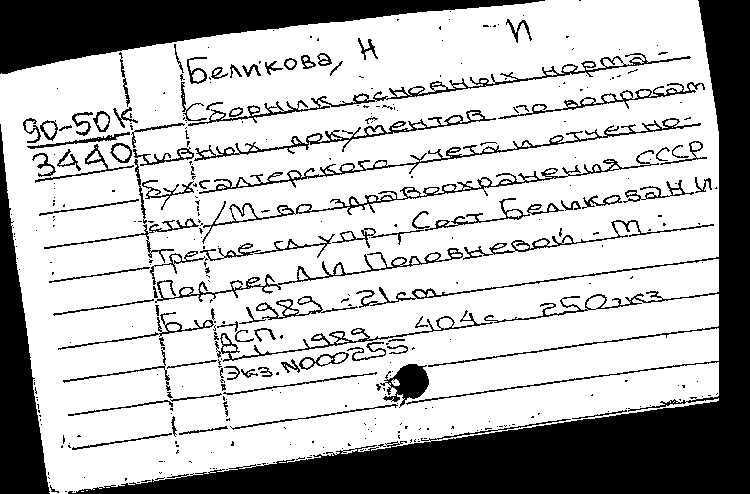 Беликова, Н И
90-50К
3440
Сборник основных норма-
тивных документов по вопросам
бухгалтерского учета и отчетно-
сти / М-во здравоохранения СССР
Третье гл. упр ; Сост Беликова Н.И.
Под ред Л И Половневой. - М. :
Б.и., 1989 - 21 см.
ДСП.
Т. 1. 1989. 404 с. 250 экз
Экз. N000255.